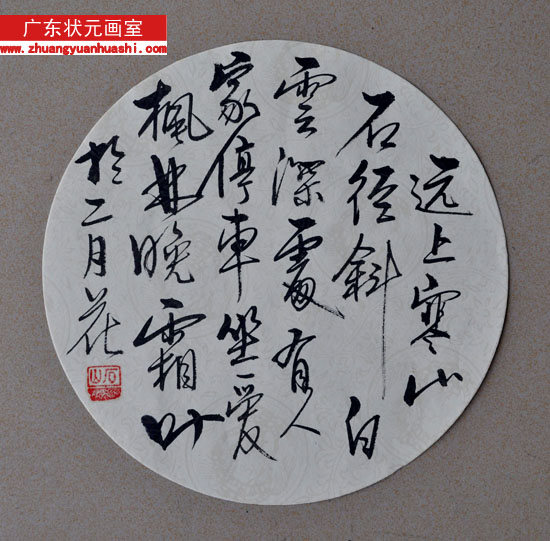 广东状元画室
www.zhuangyuanhuashi.com
远上寒山
石径斜白
雲深處有人
家停車坐爱
枫林晚霜叶
於二月花